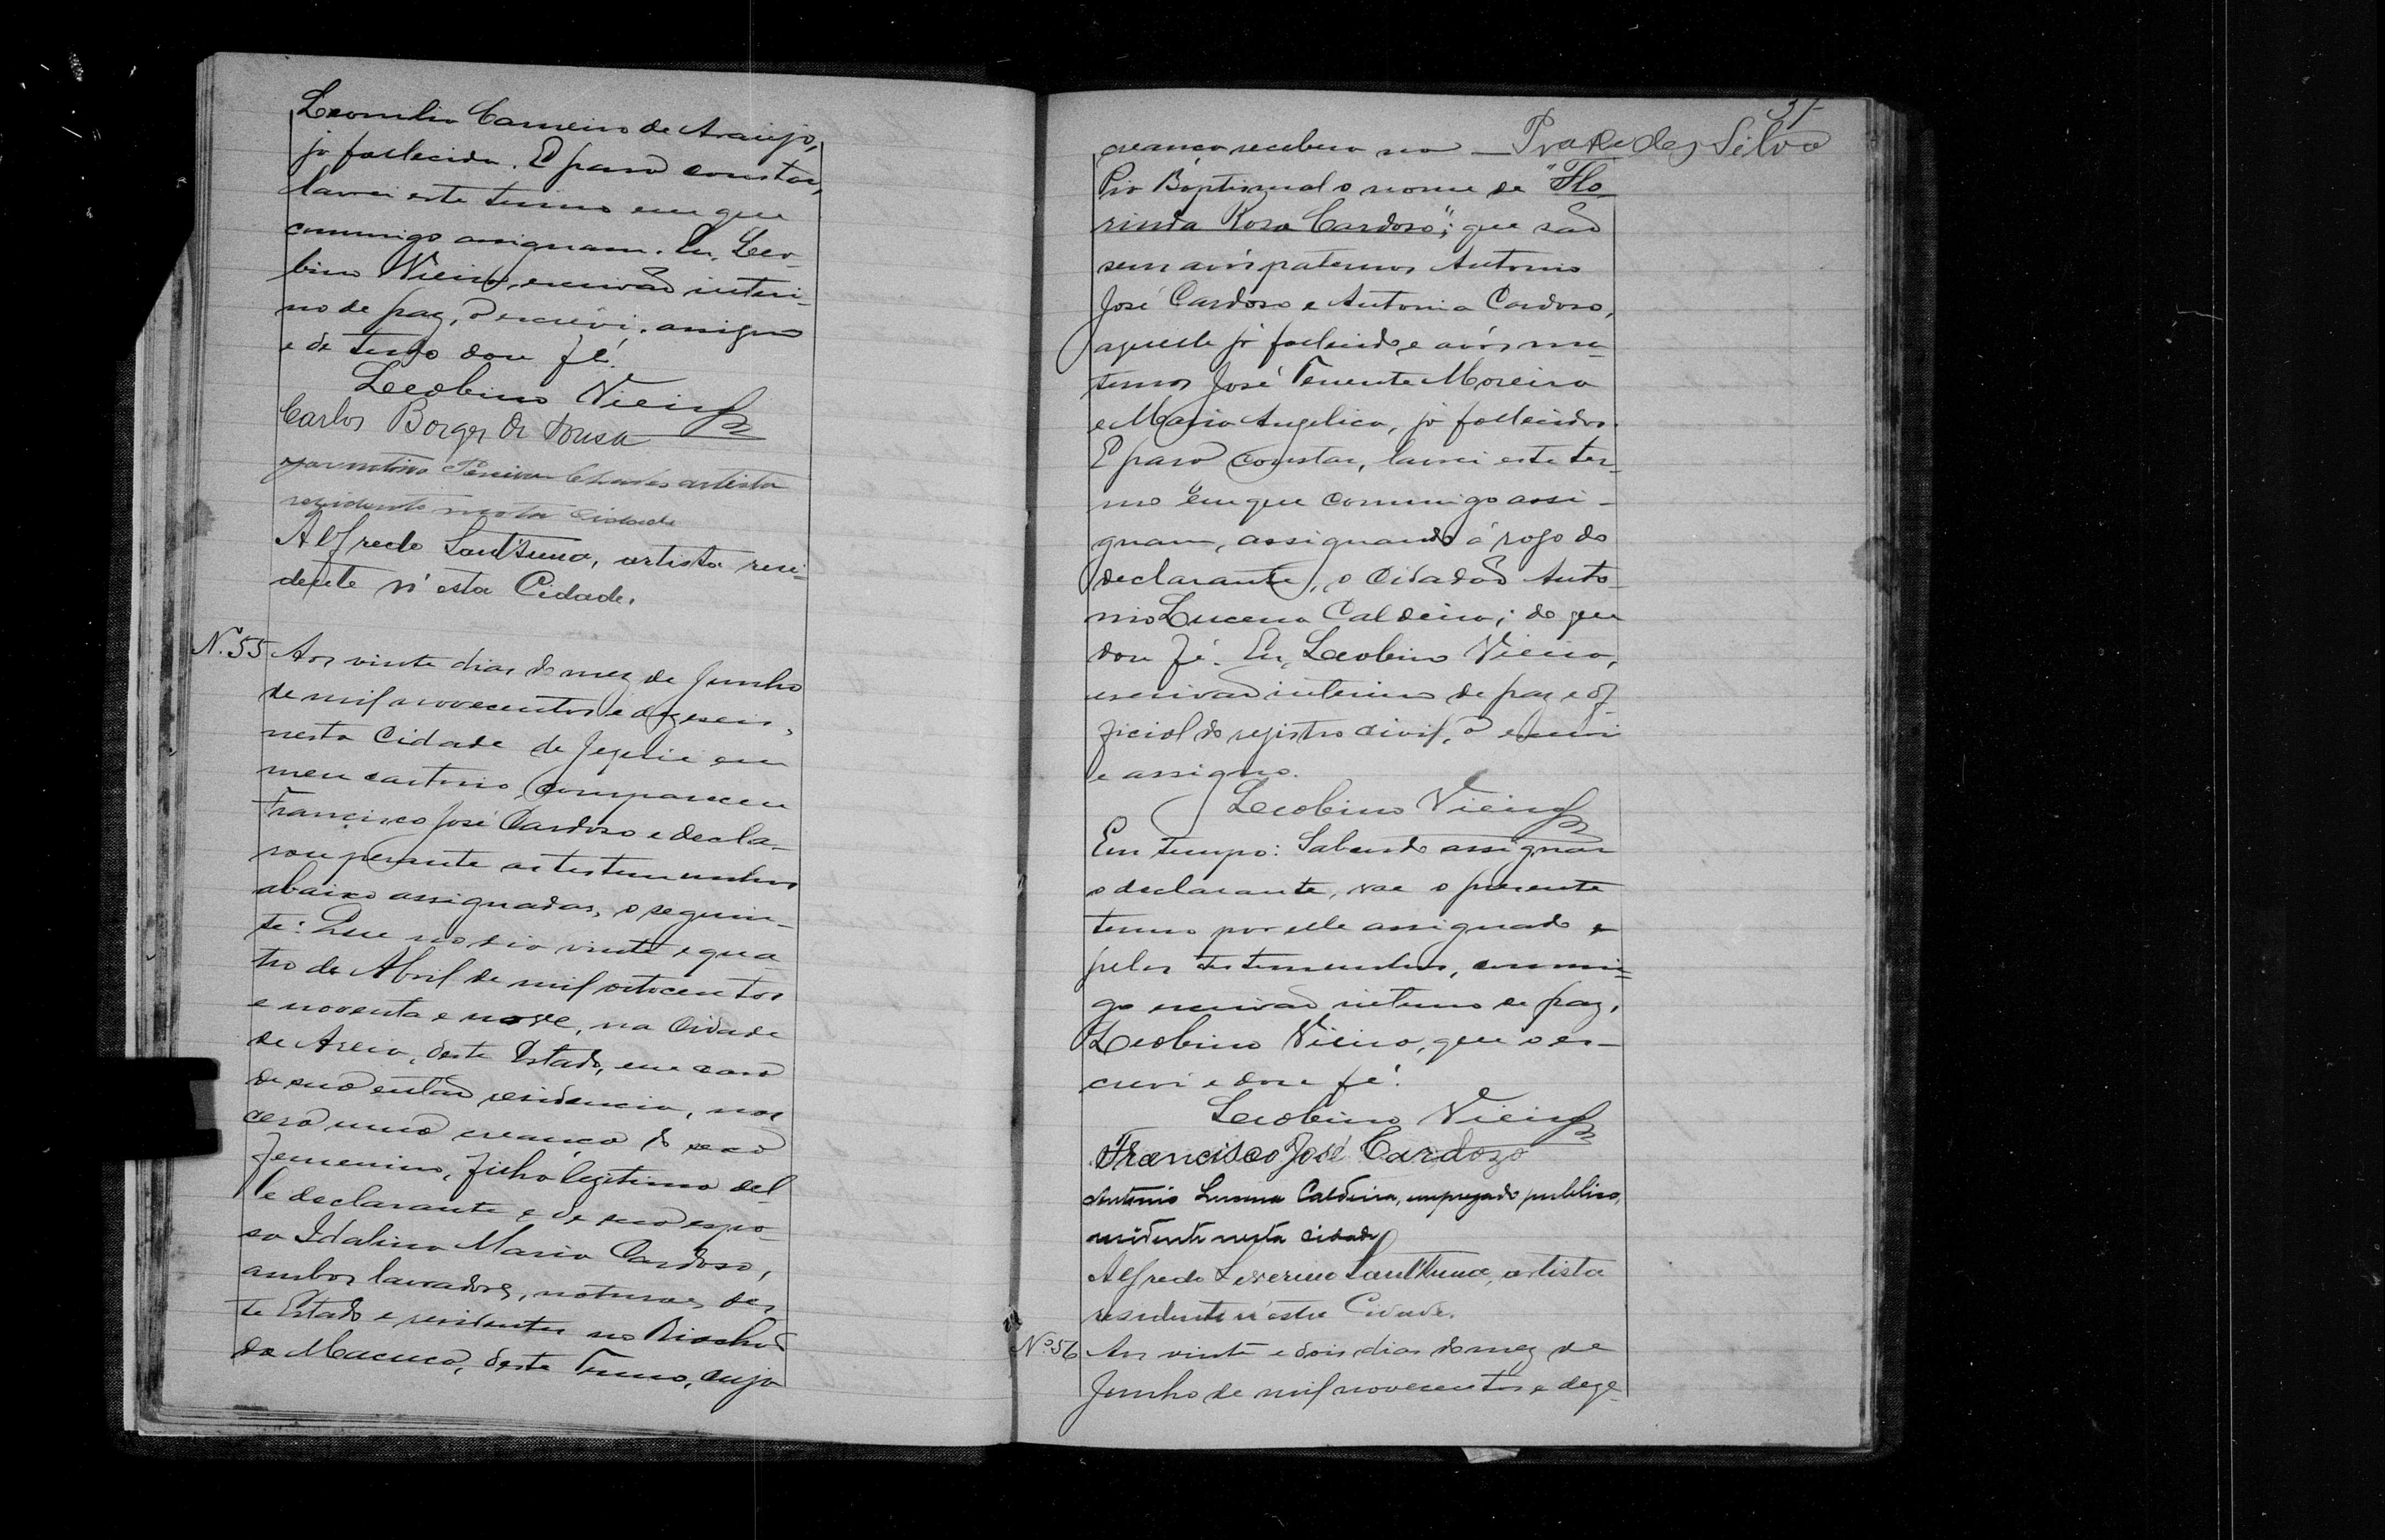 Leonilia Carneiro de Araujo,
já fallecida. E para constar,
lavrei este termo em que
commigo assignam. Eu, Leo-
bino Vieira, escrivão interi-
no de paz, o escrevi, assigno
e de tudo dou fé.
Leobino Vieira
Carlos Borges de Sousa
Pereira Chaves artista
rezidente nesta Cidade
Alfredo Sant'Anna, artista resi-
dente n'esta Cidade.
N. 55 Aos vinte dias do mez de Junho
de mil novecentos e dezeseis,
nesta Cidade de Jequié em
meu cartorio, compareceu
Francisco José Cardoso e decla-
rou perante as testemunhas
abaixo assignadas, o seguin-
te: Que no dia vinte e qua-
tro de Abril de mil oitocentos
e noventa e nove, na Cidade
de Areia, deste Estado, em casa
de sua então residencia, nas-
cera uma creança do sexo
femenino, filha legitima del-
le declarante e de sua espo-
sa Idalina Maria Cardoso,
ambos lavradores, naturaes des-
te Estado e residentes no Riachão
da Macuca, deste Termo, cuja
37
creança recebera na — Praxedes Silva
Pia Baptismal o nome de "Flo-
rinda Rosa Cardoso"; que são
seus avós paternos Antonio
José Cardoso e Antonia Cardoso,
aquelle já fallecido, e avós ma-
ternos José Tenente Moreira
e Maria Angelica, já fallecidos.
E para constar, lavrei este ter-
mo em que commigo assi-
gnam, assignando á rogo do
declarante, o Cidadão Anto-
nio Lucena Caldeira; do que
dou fé. Eu, Leobino Vieira,
escrivão interino de paz e of-
ficial do registro civil, o escrevi
e assigno.
Leobino Vieira
Em tempo: Sabendo assignar
o declarante, vae o presente
termo por elle assignado e
pelas testemunhas, commi-
go escrivão interino de paz,
Leobino Vieira, que o es-
crevi e dou fé.
Leobino Vieira
Francisco José Cardozo
Antonio Lucena Caldeira, empregado publico,
residente nesta cidade
Alfredo Severino Sant'Anna, artista
residente n'esta Cidade.
Nº 56 Aos vinte e dois dias do mez de
Junho de mil novecentos e deze-